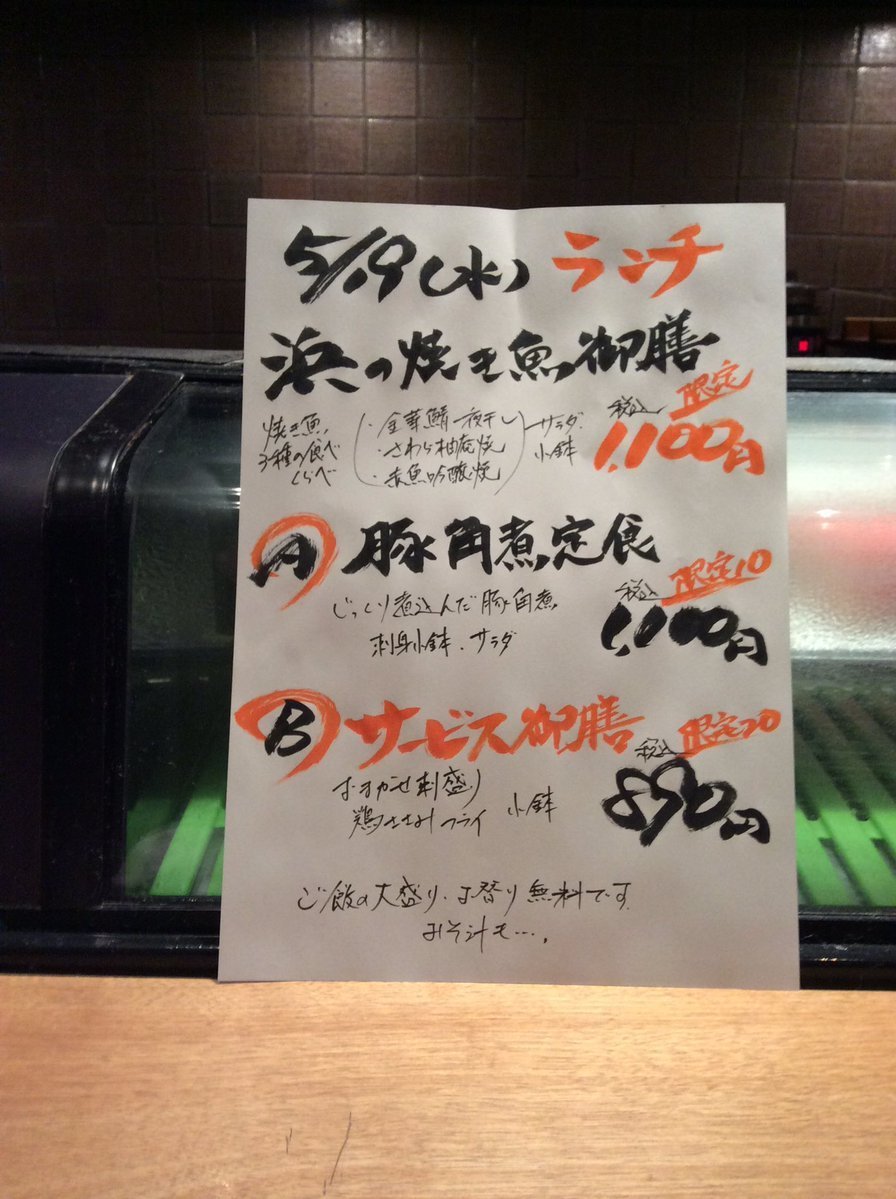 5/19(水) ランチ
浜の焼き魚御膳
限定
税込
1,100円
焼き魚
3種の食べ
くらべ
・金華鯖一夜干し
・さわら柚庵焼
・赤魚吟醸焼
サラダ
小鉢
A 豚角煮定食
税込 限定10
1,100円
じっくり煮込んだ豚角煮
刺身小鉢、サラダ
B サービス御膳
税込 限定20
890円
おまかせ刺盛り
鶏ささみフライ 小鉢
ご飯の大盛り・お替り無料です
みそ汁も…。